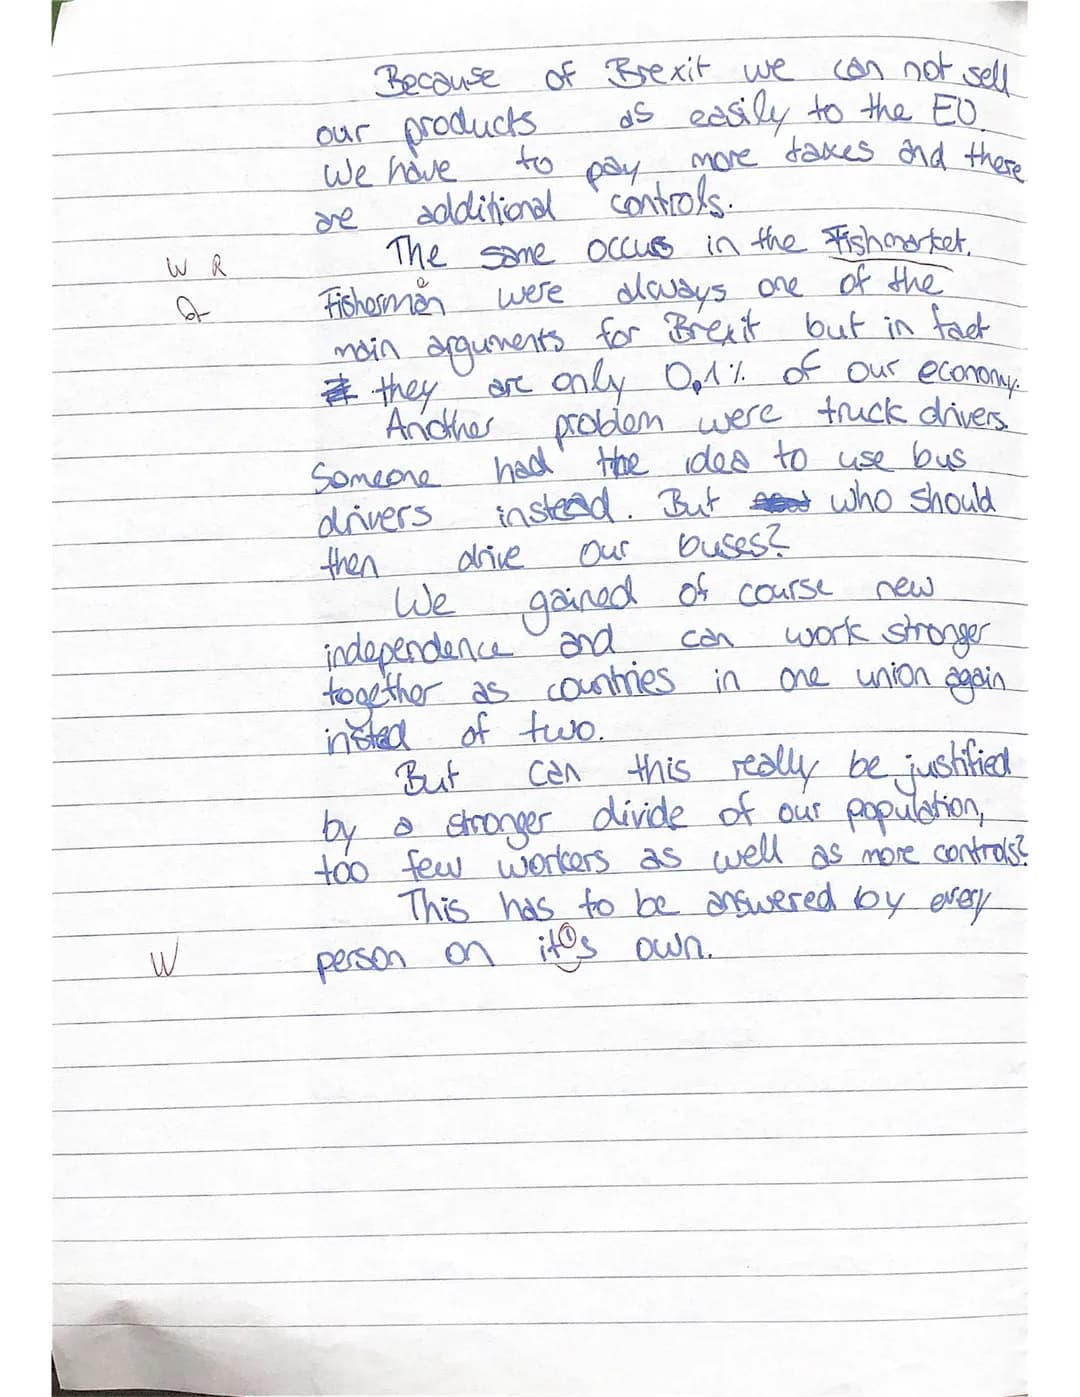 Because of Brexit we can not sell
our products as easily to the EU.
We have to pay more taxes and there
are additional controls.
The same occurs in the Fishmarket.
W R
Fisherman e were always one of the
main arguments for Brexit but in fact
they are only 0,1% of our economy.
Another problem were truck drivers.
Someone had the idea to use bus
drivers instead. But who should
then drive our buses?
We gained of course new
independence and can work stronger
together as countries in one union again
insted of two.
But can this really be justified
by a stronger divide of our population,
too few workers as well as more controls?
This has to be answered by every
W person on it's own.